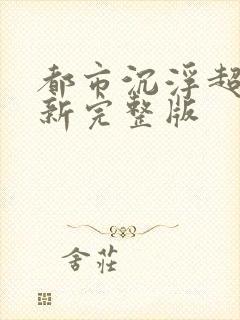 都市沉浮超
新完整版
舍莊